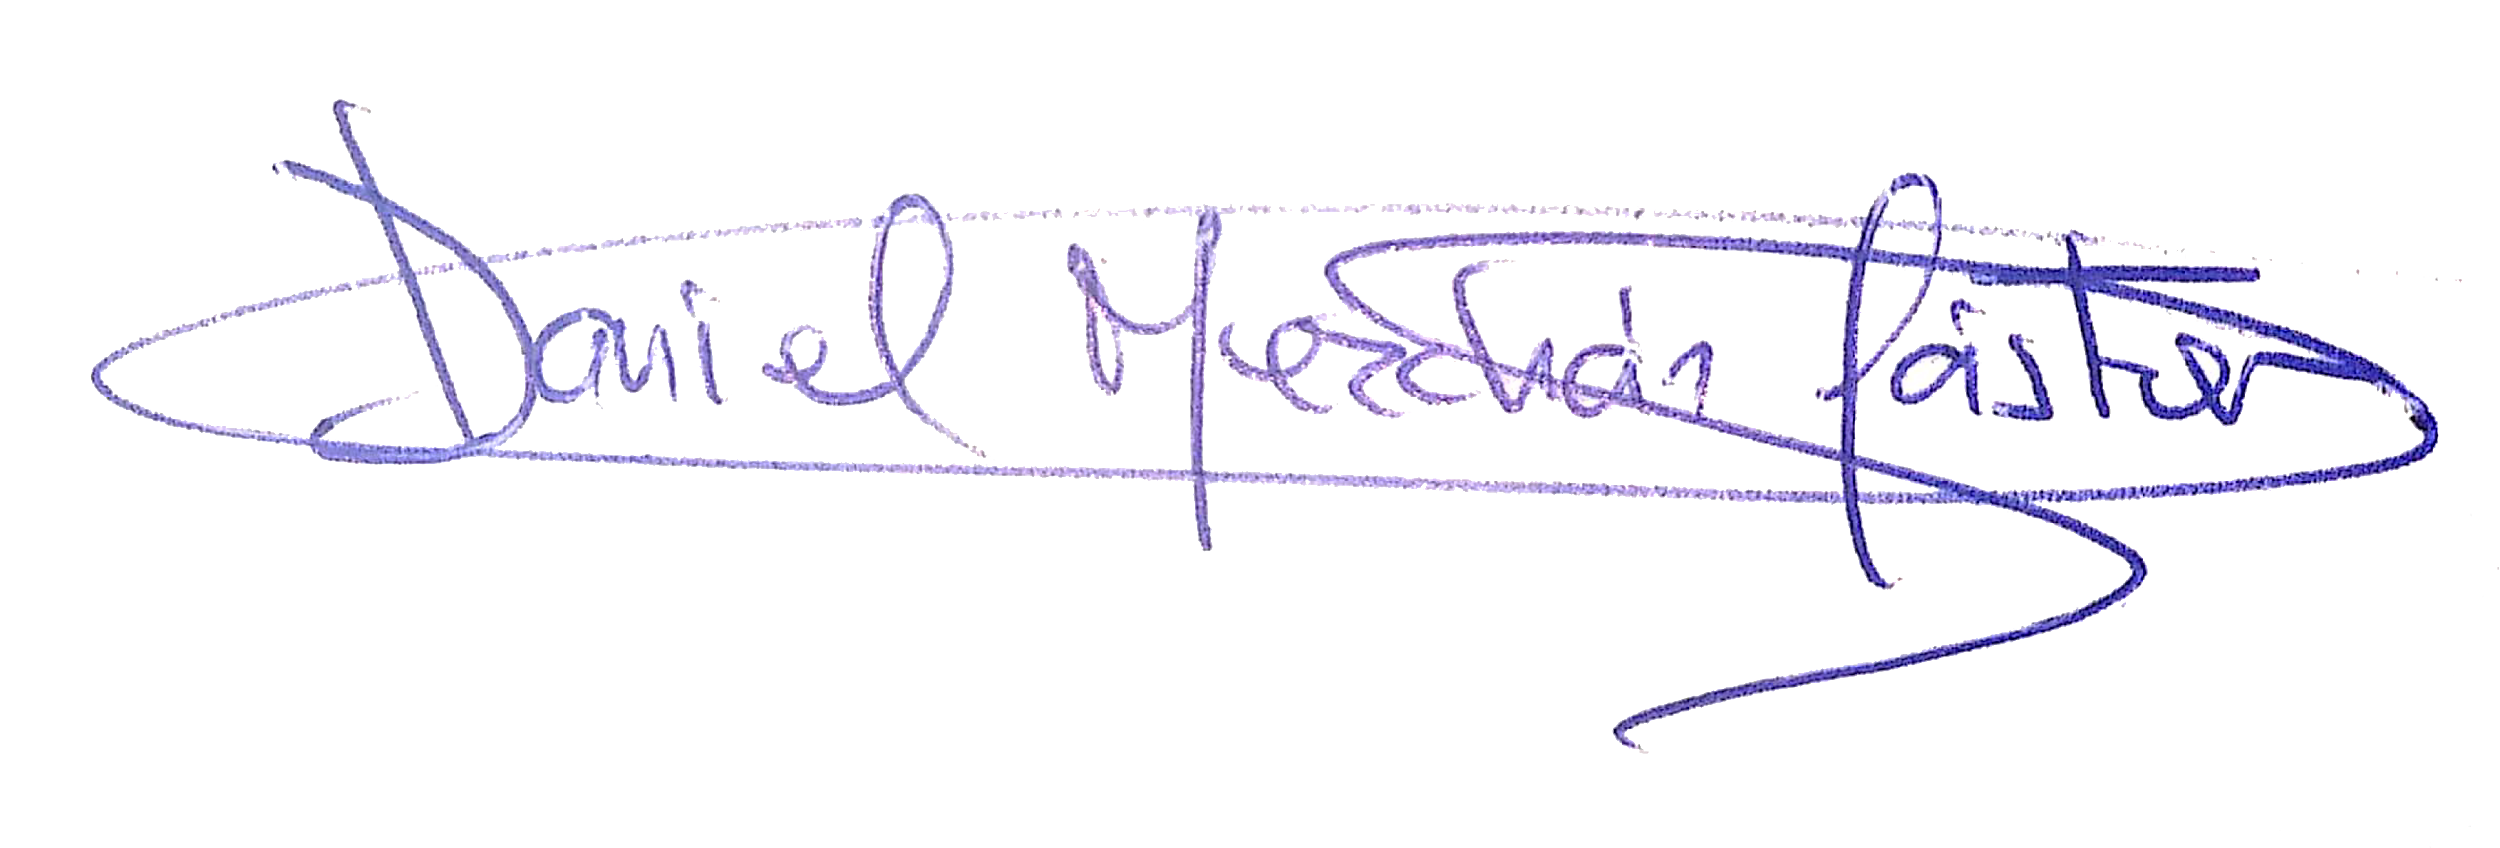 Daniel Merchán Pástor